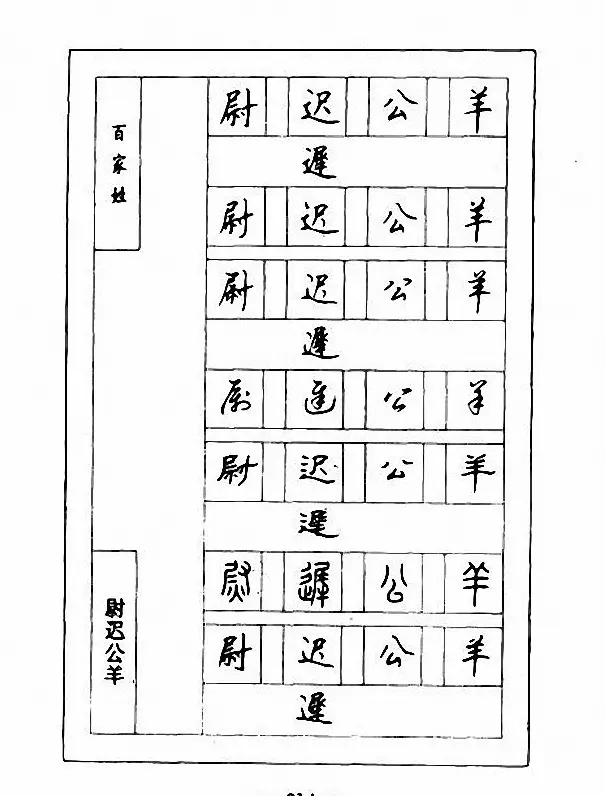 百家姓
尉迟公羊
尉 迟 公 羊
遲
尉 迟 公 羊
尉 迟 公 羊
遲
尉 迟 公 羊
尉 迟 公 羊
遲
尉 遲 公 羊
尉 迟 公 羊
遲